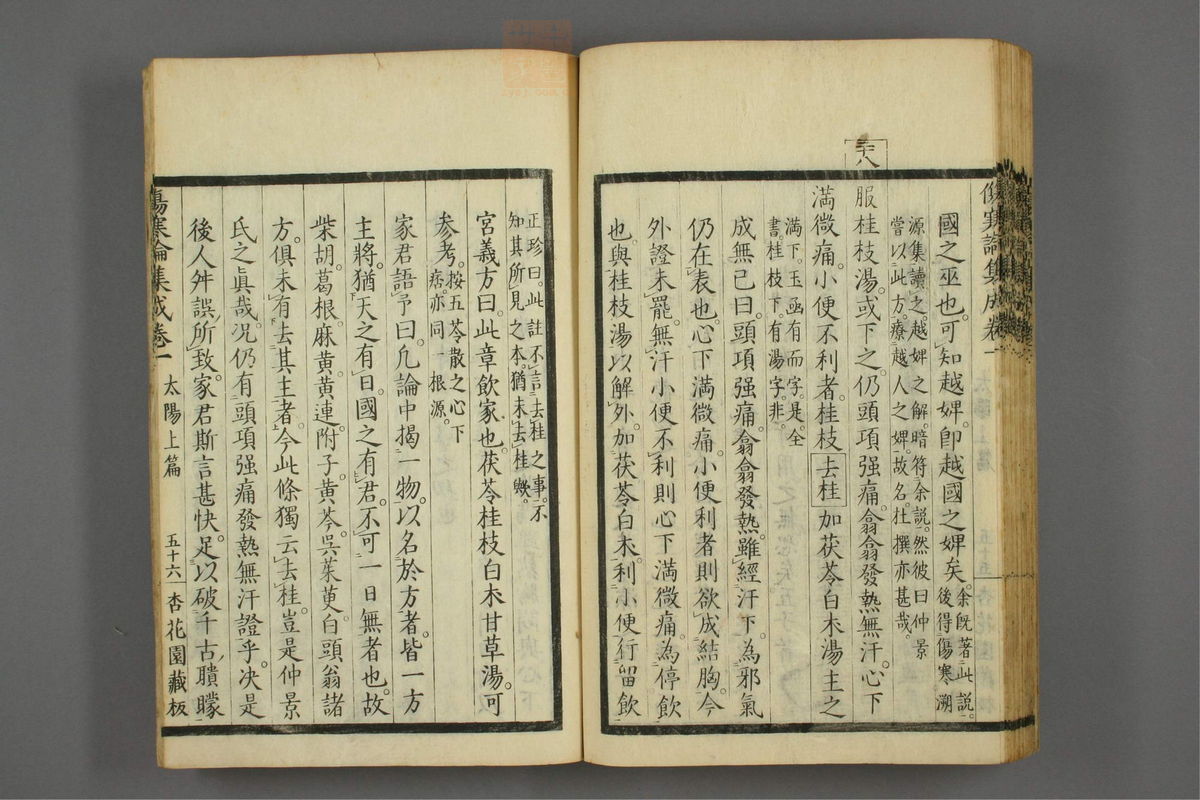 傷寒論集成卷一
國之巫也。可知越婢卽越國之婢矣。余旣著此說。後得傷寒溯
源集讀之。越婢之解。暗符余說。然彼曰仲景
嘗以此方。療越人之婢。故名。杜撰亦甚哉。
服桂枝湯。或下之。仍頭項强痛。翕翕發熱無汗。心下
滿微痛。小便不利者。桂枝去桂加茯苓白朮湯主之
滿下。玉函有而字。是。全
書。桂枝下。有湯字。非。
成無已曰。頭項强痛。翕翕發熱。雖經汗下。為邪氣
仍在表也。心下滿微痛。小便利者。則欲成結胸。今
外證未罷。無汗小便不利。則心下滿微痛。為停飲
也。與桂枝湯以解外。加茯苓白朮。利小便行留飲
正珍曰。此註不言去桂之事。不
知其所見之本。猶未去桂歟。
宮義方曰。此章飲家也。茯苓桂枝白朮甘草湯。可
參考。按五苓散之心下
痞。亦同一根源。
家君語予曰。凡論中揭一物。以名於方者。皆一方
主將。猶天之有日。國之有君。不可一日無者也。故
柴胡。葛根。麻黃。黃連。附子。黃芩。吳茱萸。白頭翁諸
方。俱未有去其主者。今此條獨云去桂。豈是仲景
氏之眞哉。況仍有頭項强痛發熱無汗證乎。決是
後人舛誤所致。家君斯言甚快。足以破千古聵矇
傷寒論集成卷一 太陽上篇 五十六 杏花園藏板